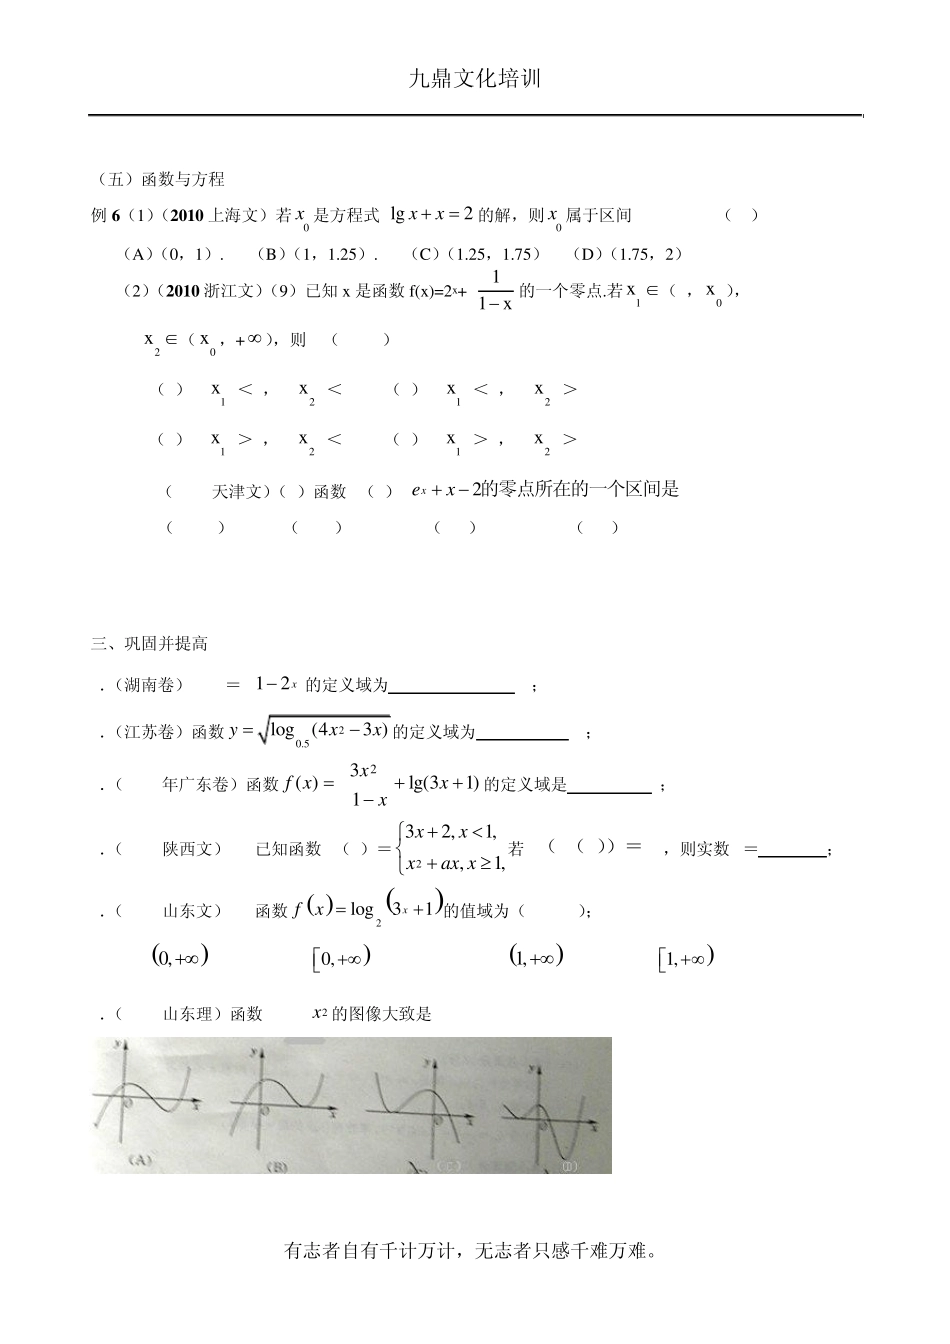 九鼎文化培训
（五）函数与方程
例 6（1）（2010 上海文）若 x0 是方程式 lg x + x = 2 的解，则 x0 属于区间 （ ）
（A）（0，1）． （B）（1，1.25）． （C）（1.25，1.75） （D）（1.75，2）
（2）（2010 浙江文）（9）已知 x 是函数 f(x)=2x+ 1/(1− x) 的一个零点.若 x1 ∈（ ，x0），
x2 ∈（ x0，+∞），则 （ ）
（ ） x1 ＜ ， x2 ＜ （ ） x1 ＜ ， x2 ＞
（ ） x1 ＞ ， x2 ＜ （ ） x1 ＞ ， x2 ＞
（ 天津文）（ ）函数 （ ） ex + x − 2的零点所在的一个区间是
（ ） （ ） （ ） （ ）
三、巩固并提高
．（湖南卷） ＝ 1− 2x 的定义域为 ；
．（江苏卷）函数 y = √log0.5 (4x2 − 3x) 的定义域为 ；
．（ 年广东卷）函数 f (x) = 3x2/(1− x) + lg(3x +1) 的定义域是 ；
．（ 陕西文） 已知函数 （ ）＝{3x + 2, x < 1, x2 + ax, x ≥ 1, 若 （ （ ））＝ ，则实数 ＝ ；
．（ 山东文） 函数 f (x) = log2 (3x +1)的值域为（ ）；
(0, +∞) [0, +∞) (1, +∞) [1, +∞)
．（ 山东理）函数 x2 的图像大致是
y y y y
O x O x O x O x
(A) (B) (C) (D)
有志者自有千计万计，无志者只感千难万难。